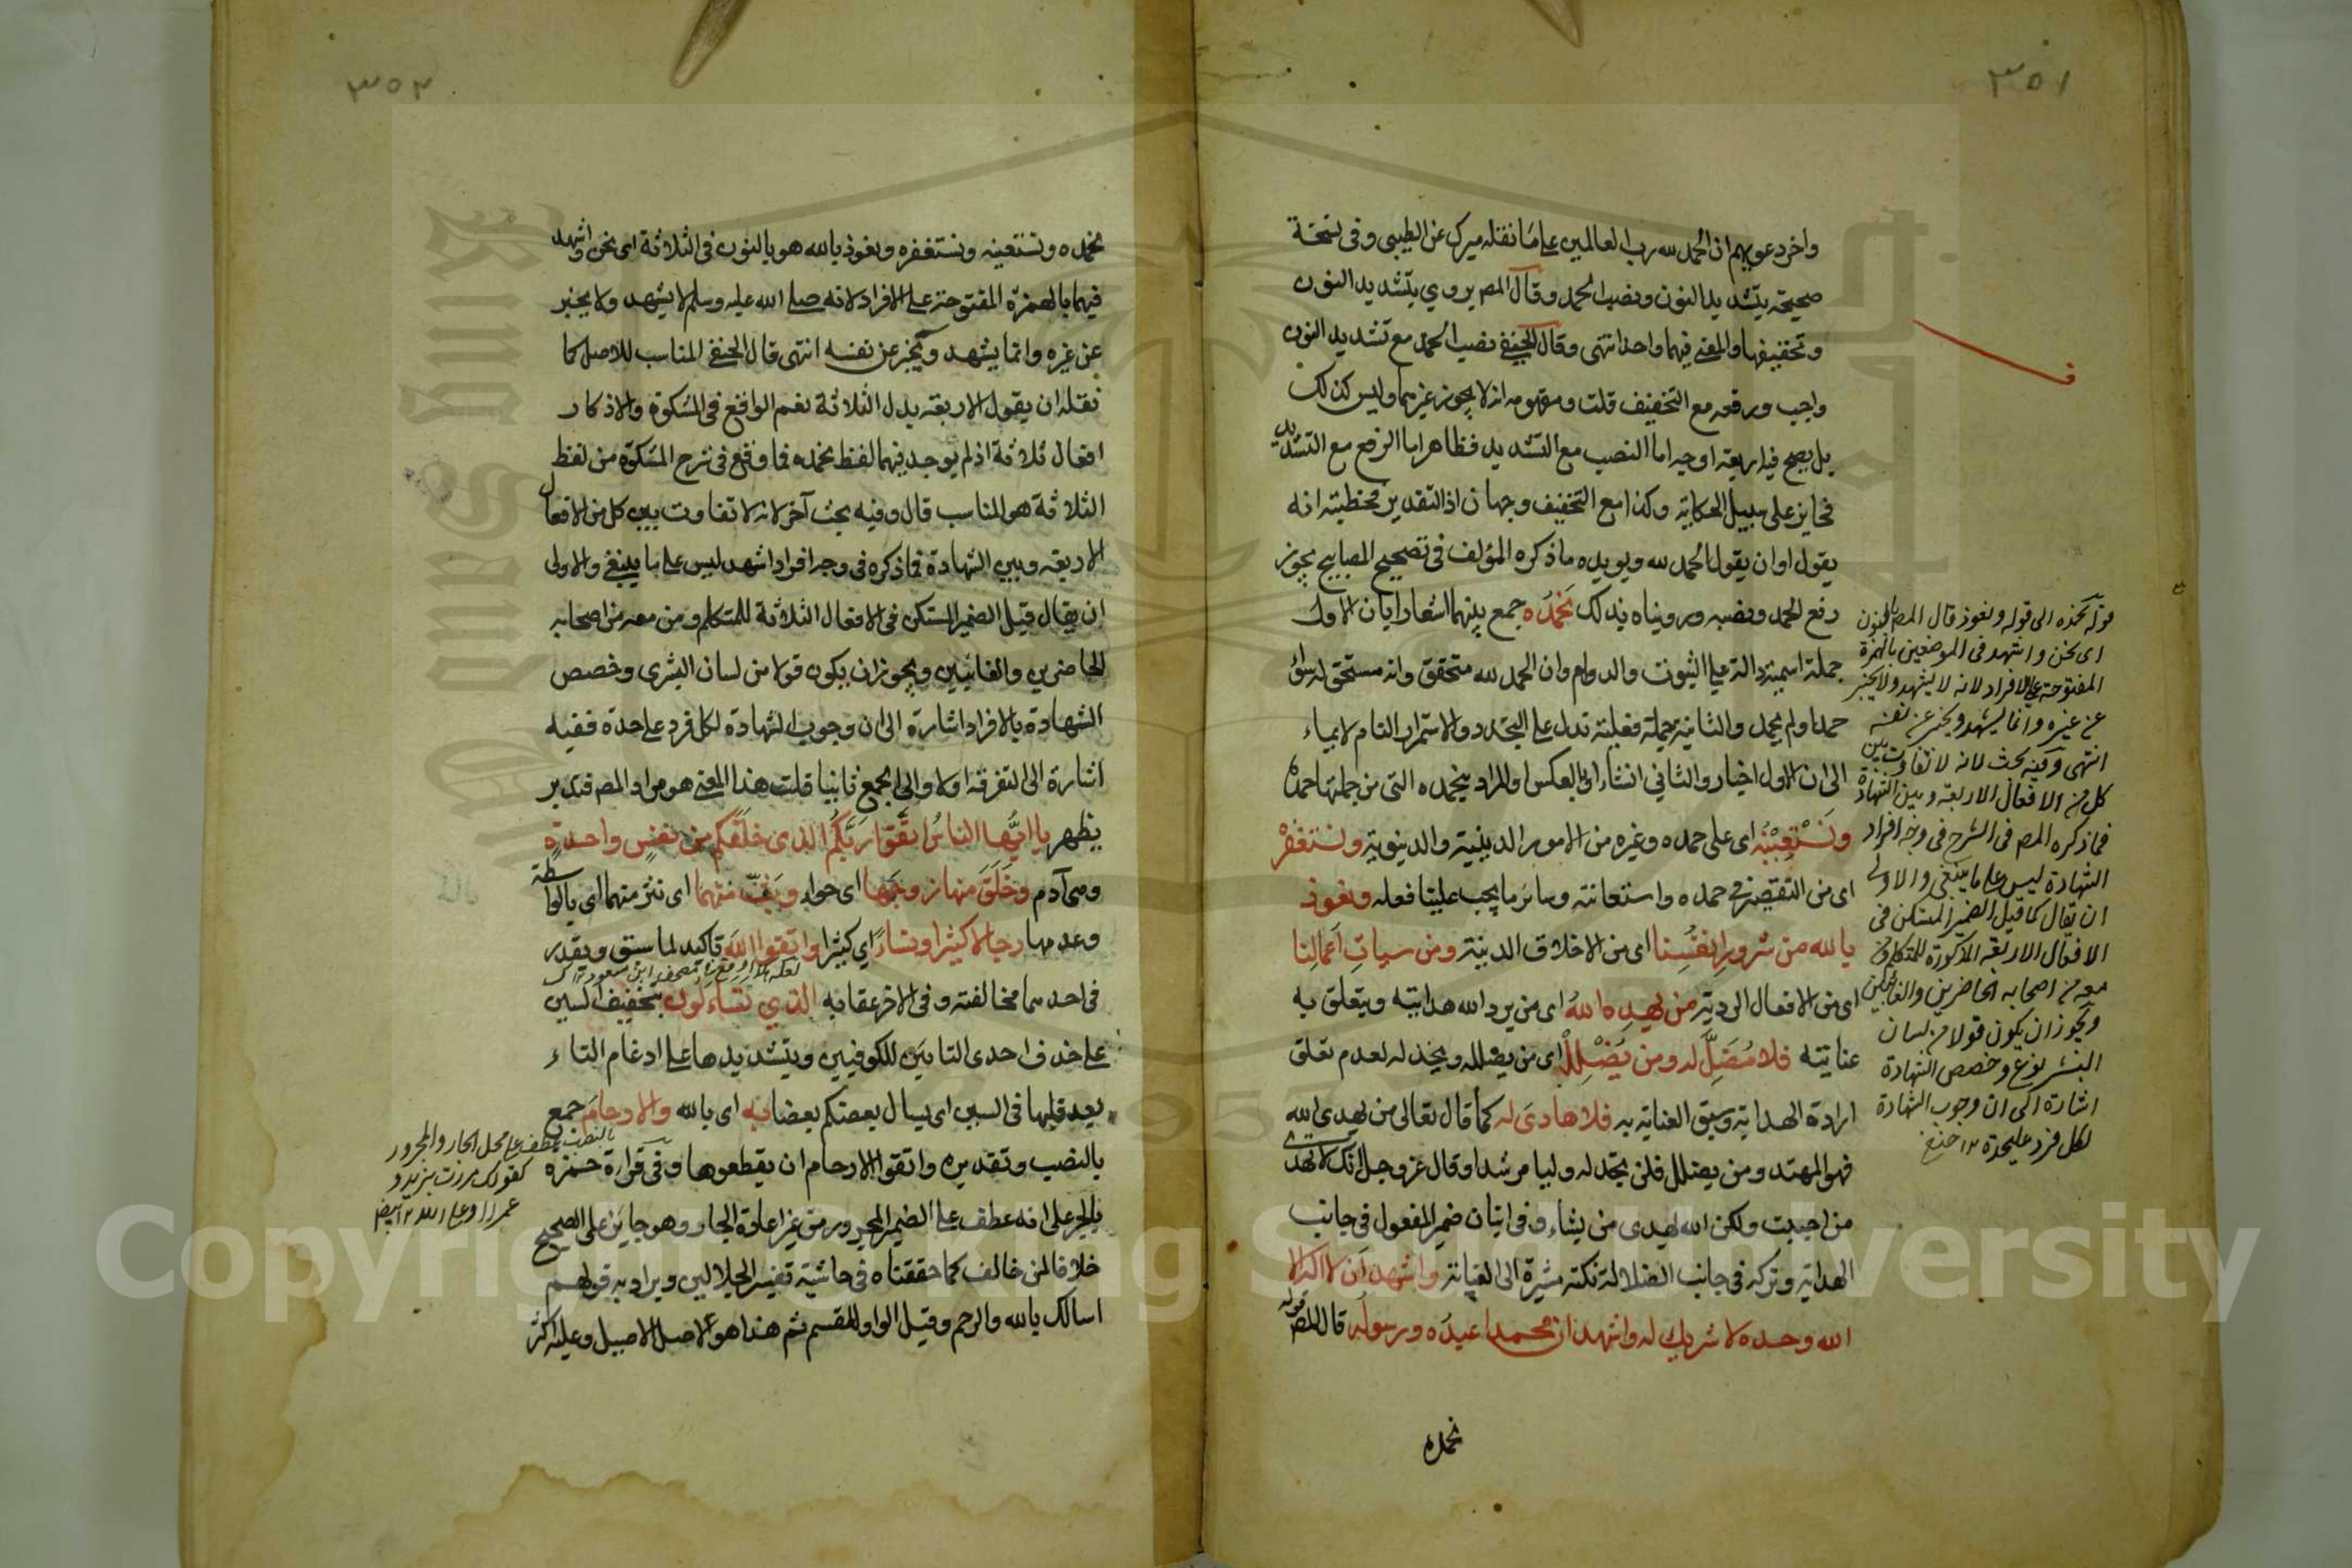 ٣٥١
واخر دعويهم ان الحمد لله رب العالمين على ما نقله ميرك عن الطيبى وفى نسخة
صحيحة بتشديد النون ونصب الحمد وقال المص يروي بتشديد النون
وتخفيفها والمعنى فيهما واحد انتهى وقال الحنفى نصب الحمد مع تشديد النون
واجب ورفعه مع التخفيف قلت ومفهومه انه لا يجوز غيرهما وليس كذلك
بل يصح فيه اربعة اوجه اما النصب مع التشديد فظاهر اما الرفع مع التشديد
فجايز على سبيل الحكاية وكذا مع التخفيف وجهان اذ التقدير فخطبته انه
يقول او ان يقول الحمد لله ويويده ما ذكره المؤلف فى تصحيح المصابيح يجوز
رفع الحمد ونصبه ورويناه بذلك نحمدُه جمع بينهما اشعارا بان الاول
جملة اسمية دالة على الثبوت والدوام وان الحمد لله متحقق وانه مستحق له سواء
حمد او لم يحمد والثانية جملة فعلية تدل على التجدد والاستمرار التام لايماء
الى ان الاول اخبار والثاني انشاء او بالعكس والمراد بنحمده التى من جملتها احمده
ونَسْتعِيْنُه اى على حمده وغيره من الامور الدينية والدنيوية ونستغفرْ
اى من التقصير فى حمده واستعانته وسائر ما يجب علينا فعله ونعوذ
بالله من شرور انفُسِنا اى من الاخلاق الدنية ومن سيات اَعمالِنا
اى من الافعال الردية من يهدِه اللهُ اى من يرد الله هدايته ويتعلق به
عنايته فلا مُضِلَّ له ومن يُضْلِلْ اى من يضلله ويخذله لعدم تعلق
ارادة الهداية وسبق العناية به فلا هادىَ له كما قال تعالى من يهدى الله
فهو المهتد ومن يضلل فلن تجد له وليا مرشدا وقال عز وجل انك لا تهدى
من احببت ولكن الله يهدى من يشاء وفى اتيان ضمير المفعول فى جانب
الهداية وتركه فى جانب الضلالة نكتة مشيرة الى العناية واشهد اَن لا اله الا
الله وحده لا شريك له واشهد ان محمدا عبدُه ورسوله قال المص قوله
نحمده
قوله نحمده الى قوله ونعوذ قال المص بالنون
اى نحن واشهد فى الموضعين بالهمزة
المفتوحة على الافراد لانه لا يشهد ولا يخبر
عن غيره وانما يشهد ويخبر عن نفسه
انتهى وفيه بحث لانه لا تفاوت بين
كل من الافعال الاربعة وبين الشهادة
فما ذكره المص فى الشرح فى وجه افراد
الشهادة ليس على ما ينبغى والاولى
ان يقال كما قيل الضمير المستكن فى
الافعال الاربعة المذكورة للمتكلم ومن
معه من اصحابه الحاضرين والغائبين
ويجوز ان يكون قولا من لسان
البشر نوع وخصص الشهادة
اشارة الى ان وجوب الشهادة
لكل فرد عليحدة ١٢ حنفى
٣٥٢
نحمده ونستعينه ونستغفره ونعوذ بالله هو بالنون فى الثلاثة اى نحن واشهد
فيهما بالهمزة المفتوحة على الافراد لانه صلى الله عليه وسلم لا يشهد ولا يخبر
عن غيره وانما يشهد ويخبر عن نفسه انتهى قال الحنفى المناسب للاصل كما
نقله ان يقول الاربعة بدل الثلاثة نعم الواقع فى المشكوة والاذكار
افعال ثلاثة اذ لم يوجد فيهما لفظ نحمده فما وقع فى شرح المشكوة من لفظ
الثلاثة هو المناسب قال وفيه بحث آخر لانه لا تفاوت بين كل من الافعال
الاربعة وبين الشهادة فما ذكره فى وجه افراد اشهد ليس على ما ينبغى والاولى
ان يقال قيل الضمير المستكن فى الافعال الثلاثة للمتكلم ومن معه من اصحابه
الحاضرين والغائبين ويجوز ان يكون قولا من لسان البشرى وخصص
الشهادة بالافراد اشارة الى ان وجوب الشهادة لكل فرد على حدة ففيه
اشارة الى التفرقة اولا والى الجمع ثانيا قلت هذا المعنى هو مراد المص فتدبر
يظهر يا ايُّها الناسُ اتقوا ربَّكم الذى خلقكم من نفسٍ واحدةٍ
وهى آدم وخلق منها زوجَها اى حواء وبَثّ منهما اى نشر منهما اى بالواسطة
وعدمها رجالا كثيرا ونساءً اي كثيرا واتقوا الله تاكيد لما سبق ويقدر
فى احدهما مخالفته وفى الاخر عقابه الذي تساءلون بتخفيف السين
على حذف احدى التايين للكوفيين وبتشديدها على ادغام التاء
بعد قلبها فى السين اى يسال بعضكم بعضا به اى بالله والارحامَ جمع
بالنصب وتقديره واتقوا الارحام ان يقطعوها وفى قراءة حمزه
بالجر على انه عطف على الضمير المجرور من غير اعادة الجار وهو جايز على الصحيح
خلافا لمن خالف كما حققناه فى حاشية تفسير الجلالين ويراد به قولهم
اسالك بالله والرحم وقيل الواو للقسم ثم هذا هو الاصل الاصيل وعليه اكثر
بالنصب عطف على محل الجار والمجرور
كقولك مررت بزيد و
عمرا
Copyright © King Saud University